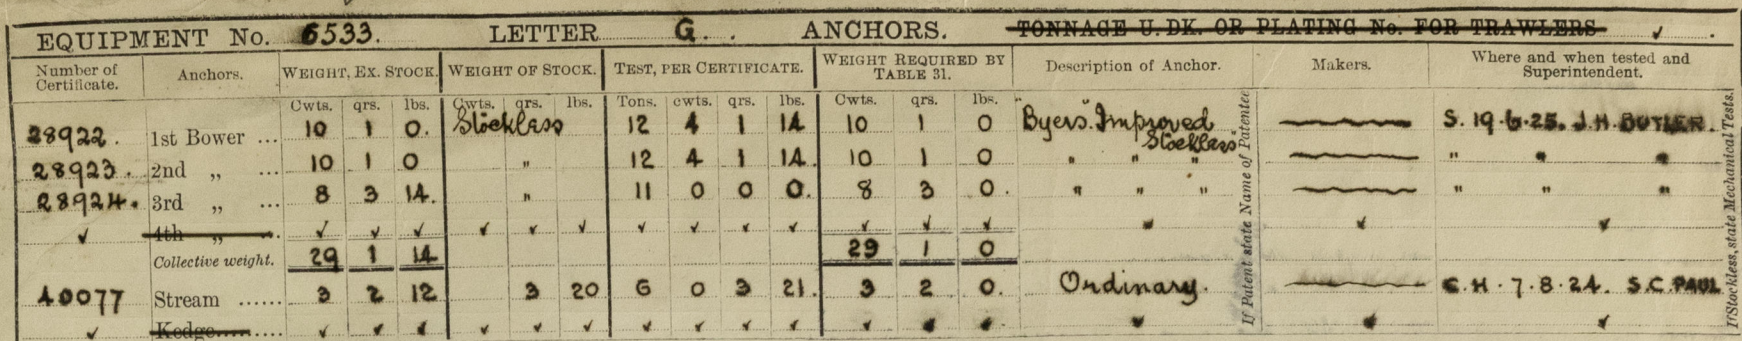 EQUIPMENT No. 6533. LETTER G. ANCHORS. TONNAGE U.DK. OR PLATING No. FOR TRAWLERS ✓ .
Number of Certificate. Anchors. WEIGHT, EX. STOCK. WEIGHT OF STOCK. TEST, PER CERTIFICATE. WEIGHT REQUIRED BY TABLE 31. Description of Anchor. Makers. Where and when tested and Superintendent.
Cwts. qrs. lbs. Cwts. qrs. lbs. Tons. cwts. qrs. lbs. Cwts. qrs. lbs.
28922. 1st Bower ... 10 1 0. Stockless 12 4 1 14 10 1 0 "Byers" Improved Stockless S. 19.6.25. J.H. BUTLER.
28923. 2nd „ ... 10 1 0 " 12 4 1 14. 10 1 0 " " " " " "
28924. 3rd „ ... 8 3 14. " 11 0 0 0. 8 3 0. " " " " " "
✓ 4th „ ... ✓ ✓ ✓ ✓ ✓ ✓ ✓ ✓ ✓ ✓ ✓ ✓ ✓ ✓ ✓ ✓
Collective weight. 29 1 14 29 1 0
40077 Stream ...... 3 2 12 3 20 6 0 3 21. 3 2 0. Ordinary. C.H. 7.8.24. S.C. PAUL
✓ Kedge...... ✓ ✓ ✓ ✓ ✓ ✓ ✓ ✓ ✓ ✓ ✓ ✓ ✓ ✓ ✓ ✓
If Patent state Name of Patentee
If Stockless, state Mechanical Tests.